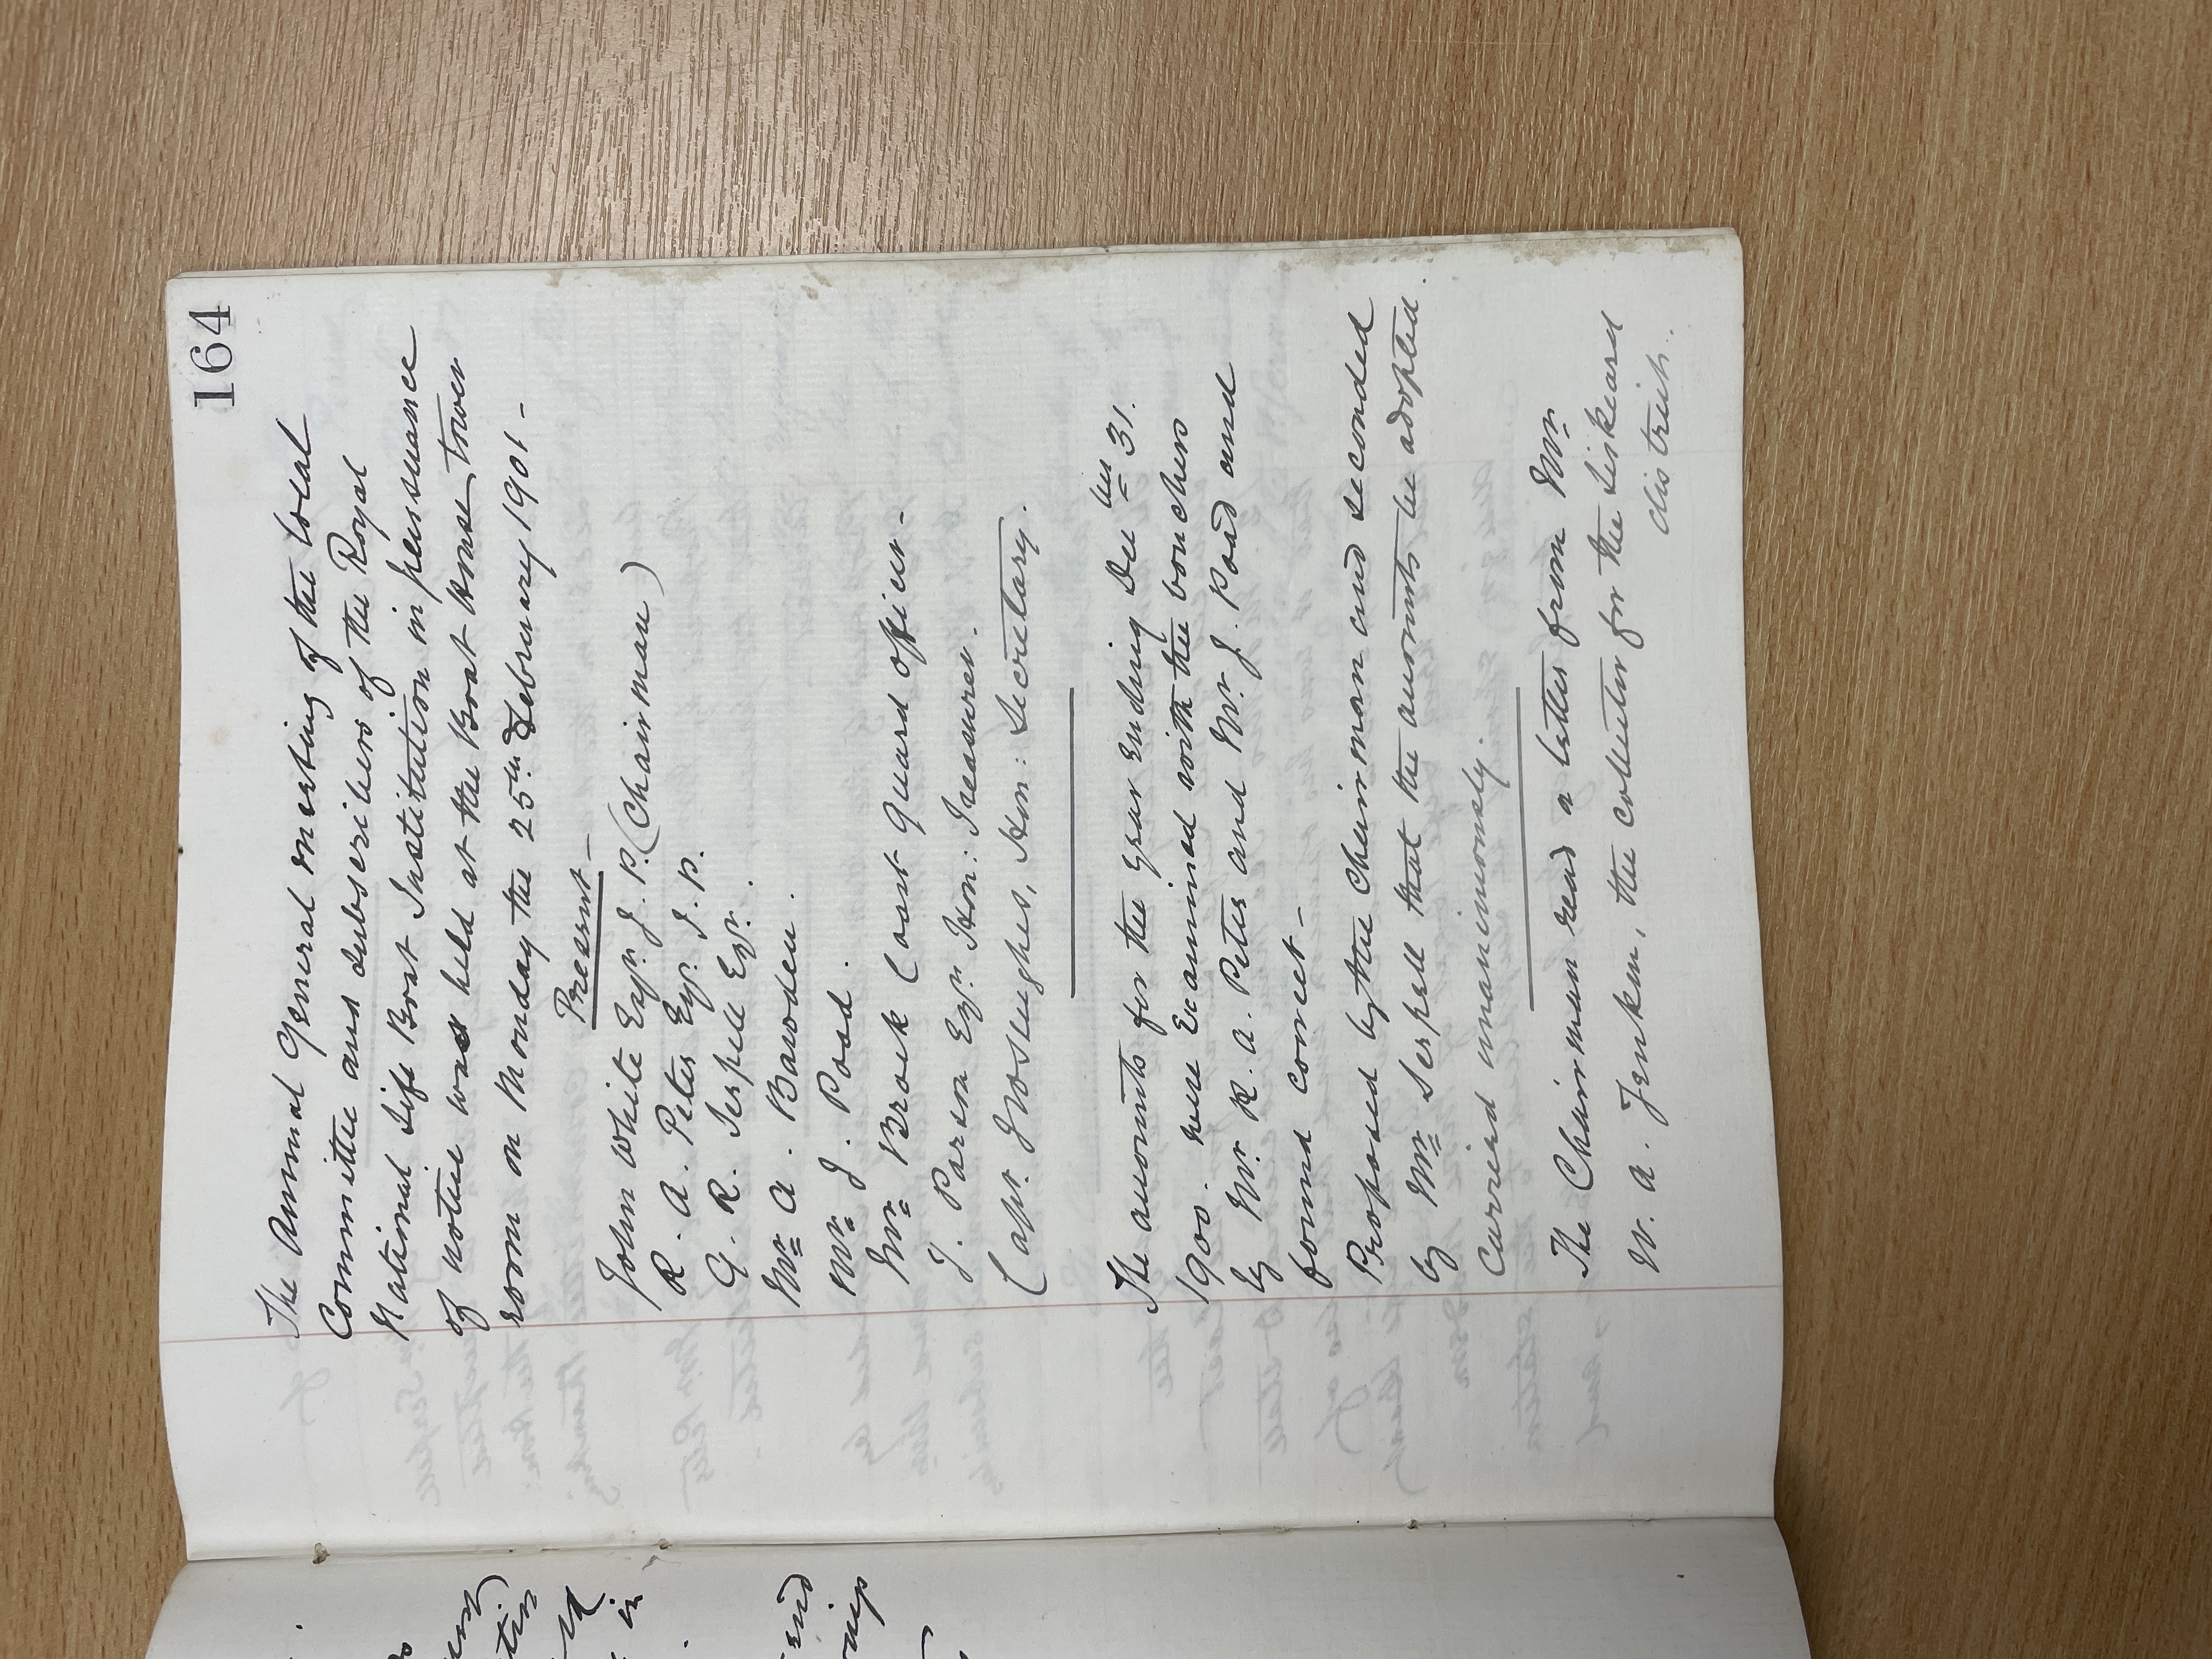 164
The Annual General meeting of the Local
Committee and Subscribers of the Royal
National Life Boat Institution in persuance
of notice was held at the Boat House, tower
room on Monday the 25th February 1901 -
Present -
John White Esqr. J. P. (Chairman)
R. A. Peter Esqr. J. P.
G. R. Serpell Esqr.
Mr A. Bawoden.
Mr J. Poad.
Mr Brock Coast Guard officer -
J. Parson Esqr. Hon: Treasurer.
Capt. Hon: Secretary.
The accounts for the year ending Decber 31.
1900. were Examined with the vouchers
by Mr. R. A. Peter and Mr. J. Poad and
found correct -
Proposed by the Chairman and Seconded
by Mr Serpell that the accounts be adopted.
Carried unanimously.
The Chairman read a letter from Mr
W. A. Jenken, the collector for the Liskeard
district.
in
end